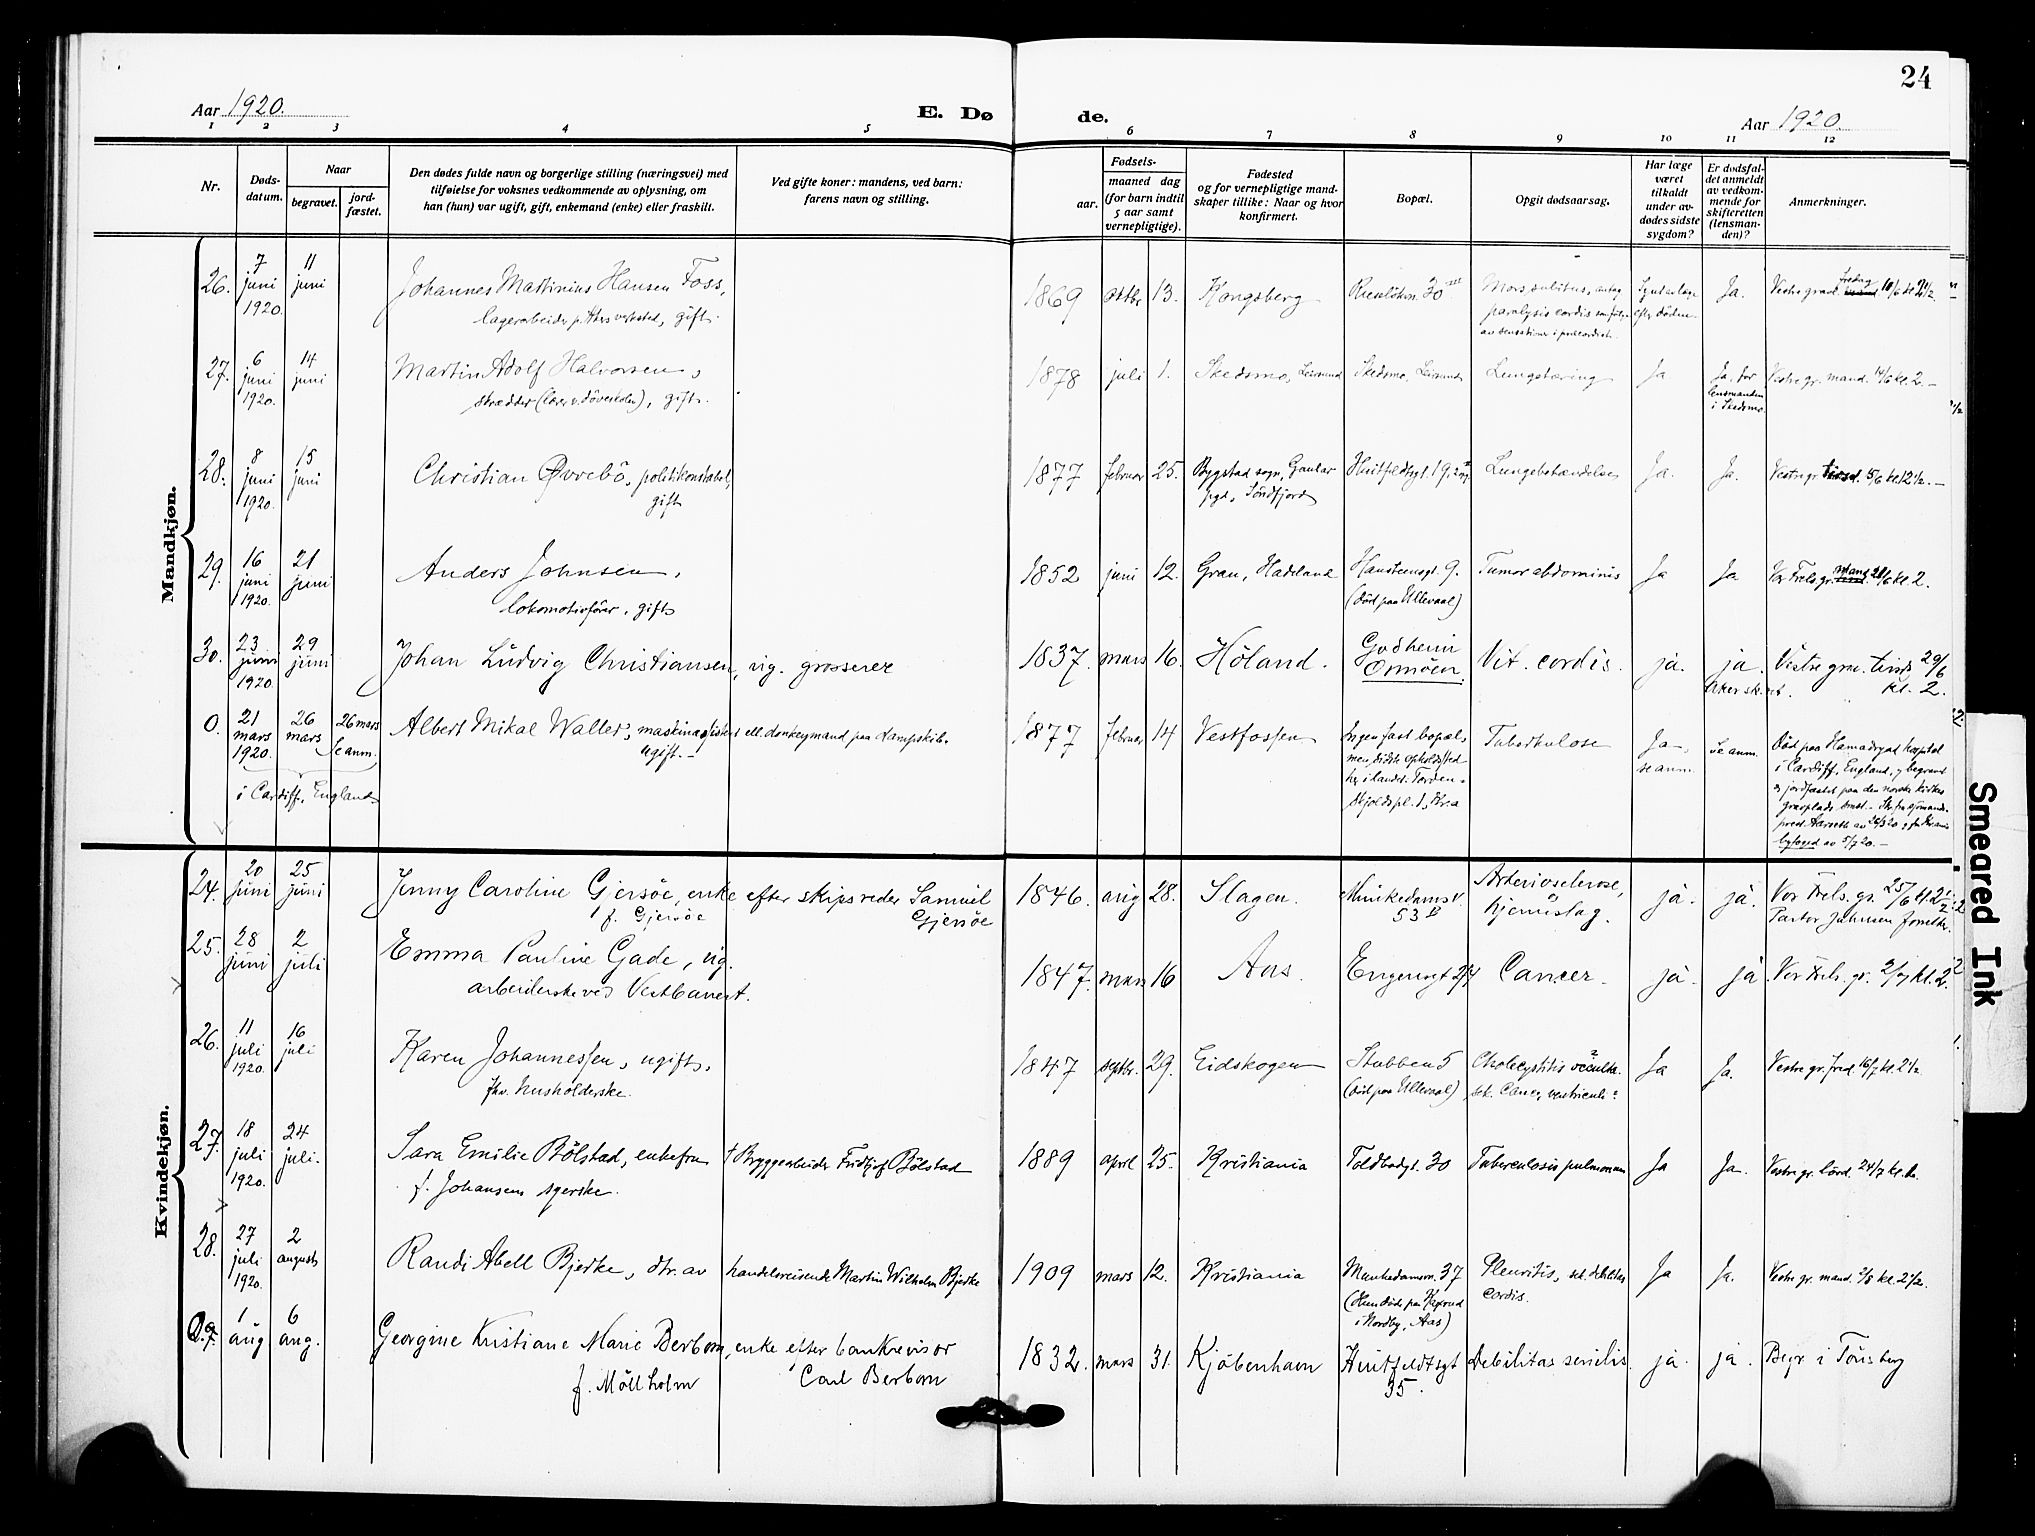 24
Aar 1920.
E. Dø
de.
Aar 1920.
1 2 3 4 5 6 7 8 9 10 11 12
Nr.
Døds-
datum.
Naar
begravet.
jord-
fæstet.
Den dødes fulde navn og borgerlige stilling (næringsvei) med
tilføielse for voksnes vedkommende av oplysning, om
han (hun) var ugift, gift, enkemand (enke) eller fraskilt.
Ved gifte koner: mandens, ved barn:
farens navn og stilling.
Fødsels-
aar.
maaned dag
(for barn indtil
5 aar samt
vernepligtige).
Fødested
og for vernepligtige mand-
skaper tillike: Naar og hvor
konfirmert.
Bopæl.
Opgit dødsaarsag.
Har læge
været
tilkaldt
under av-
dødes sidste
sygdom?
Er dødsfal-
det anmeldt
av vedkom-
mende for
skifteretten
(lensman-
den)?
Anmerkninger.
Mandkjøn.
26. 7 juni 1920. 11 juni
Johannes Martinius Hansen Foss,
lagerarbeider p. Akers verksted, gift.
1869 oktbr. 13. Kongsberg
Mors subitus, antag
paralysis cordis
efter døden.
Ja.
27. 6 juni 1920. 14 juni
Martin Adolf Halvorsen,
skrædder (lærer v. døveskolen), gift.
1878 juli 1. Skedsmo, Leirsund Skedsmo, Leirsund Lungetæring Ja
Ja, for
lensmanden
i Skedsmo.
Vestre gr. mand. 14/6 kl. 2. –
28. 8 juni 1920. 15 juni
Christian Øvrebö, politikonstabel,
gift
1877 februar 25. Bygstad sogn, Gaular
pgd., Söndfjord
Huitfeldtsgt. 19, Lungebetændelse Ja. Ja.
Vestre gr. tirsd. 15/6 kl. 12 1/2. –
29. 16 juni 1920. 21 juni
Anders Johnsen,
lokomotivfører, gift
1852 juni 12. Gran, Hadeland Hansteensgt. 9.
(død paa Ullevaal)
Tumor abdominis Ja Ja
Vor Frels. gr. mand. 21/6 kl. 2.
30. 23 juni 1920. 29 juni
Johan Ludvig Christiansen, ug. grosserer
1837. mars 16. Höland. Godheim
Ormöen.
Vit. cordis. ja. ja.
Aker sk.ret.
Vestre grav. tirsd. 29/6
kl. 2.
0. 21 mars 1920. 26 mars 26 mars
Se anm.
i Cardiff, England
Albert Mikal Waller, maskinassistent ell. donkeymand paa dampskib.
ugift. –
1877 februar 14 Vestfossen
Ingen fast bopæl,
men sidste opholdssted
her i landet: Torden-
skjoldspl. 1, Kr.a
Tuberkulose
Ja –
se anm.
Se anm.
Død paa Hamadryad hospital
i Cardiff, England, og begravet
og jordfæstet paa den norske kirkes
gravplads smst. – Skr. fra sjømands-
prest Aarseth av 26/3 20 og fra Kr.ania
byfoged av 5/7 20. –
Kvindekjøn.
24. 20 juni 25 juni
Jenny Caroline Gjersöe, enke efter skipsreder Samuel
f. Gjersöe Gjersöe
1846. aug 28. Slagen. Munkedamsv.
53 II
Arteriosclerose,
hjerneslag.
ja. ja.
Vor Frels. gr. 25/6 kl. 2 1/2
Pastor Johnsen forretter.
25. 28 juni 2 juli
Emma Pauline Gade, ug.
arbeiderske ved Vestbanen.
1847. mars 16 Aas. Engensgt 2/4 Cancer. ja. ja
Vor Frels. gr. 2/7 kl. 2.
26. 11 juli 1920. 16 juli
Karen Johannessen, ugift,
fhv. husholderske.
1847 septbr. 29. Eidskogen Stubben 5
(død paa Ullevaal)
Cholecystitis occulta
sek. Cancer ventriculi?
Ja Ja.
Vestre gr. fred. 16/7 kl. 2 1/2.
27. 18 juli 1920. 24 juli.
Sara Emilie Bölstad, enkefru † Bryggearbeider Fridtjof Bölstad
f. Johansen syerske.
1889 april 25. Kristiania Toldbodgt. 30 Tuberculosis pulmonum Ja Ja.
Vestre gr. lörd. 24/7 kl.
28. 27 juli 1920. 2 august
Randi Abell Bjerke, dtr. av handelsreisende Martin Wilhelm Bjerke
1909 mars 12. Kristiania Munkedamsv. 37
(Hun døde paa
i Nordby, Aas)
Pleuritis, sek. debilitas
cordis.
Ja Ja.
Vestre gr. mand. 2/8 kl. 2 1/2.
29. 1 aug 6 aug.
Georgine Kristiane Marie Berbom, enke efter bankrevisor
f. Möllholm Carl Berbom
1832. mars 31. Kjöbenhavn Huitfeldtsgt
35.
Debilitas senilis. ja. ja.
Begr. i Tönsberg
Smeared Ink